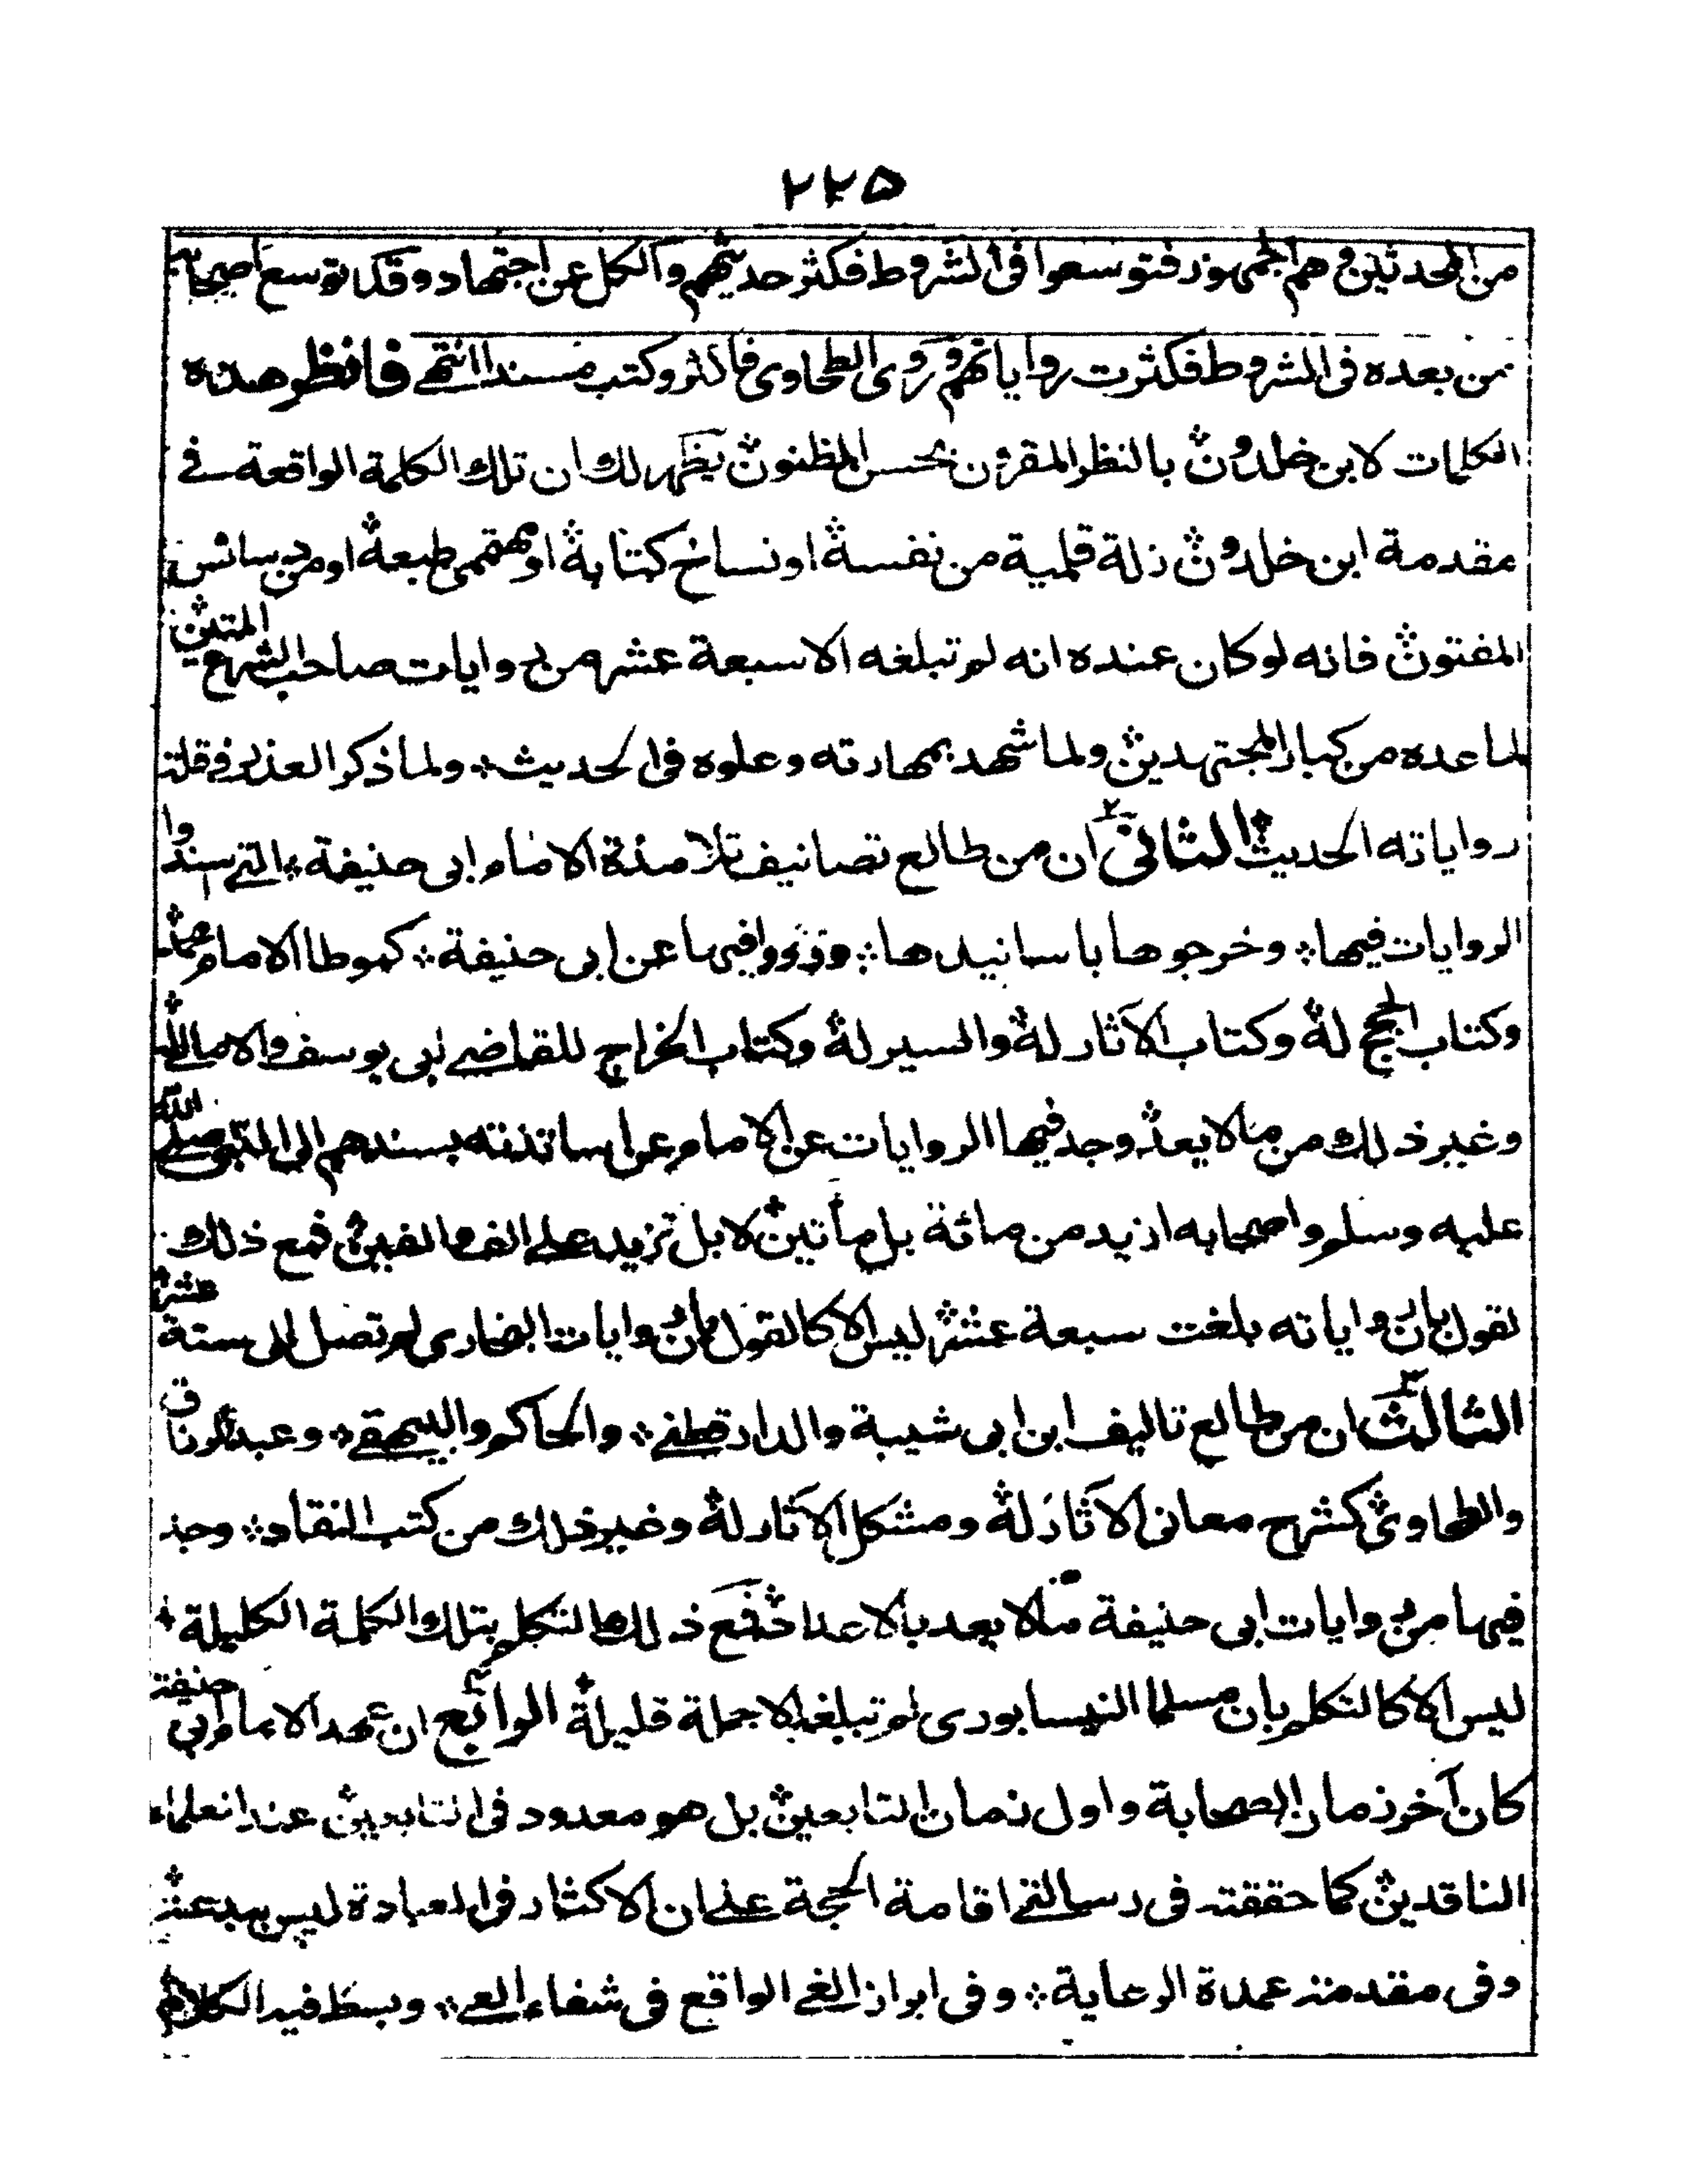 ٢٢٥
من المحدثين وهم الجمهور فتوسعوا فى الشروط فكثر حديثهم والكل عن اجتهاد وقد توسع اصحابه
من بعده فى الشروط فكثرت رواياتهم وروى الطحاوى فاكثر وكتب مسندا انتهى فانظر هذه
الكلمات لابن خلدون بالنظر المقرون بحسن المظنون يظهر لك ان تلك الكلمة الواقعة فى
مقدمة ابن خلدون زلة قلمية من نفسه او نساخ كتابه او مهتمى طبعه او من دسائس
المفتون فانه لو كان عنده انه لم تبلغه الا سبعة عشر من روايات صاحب الشرع المتين
لما عده من كبار المجتهدين ولما شهد بمهارته وعلوه فى الحديث ولما ذكر العذر فى قلة
رواياته الحديث الثانى ان من طالع تصانيف تلامذة الامام ابى حنيفة التى اسندوا
الروايات فيها وخرجوها باسانيدها ورووا فيها عن ابى حنيفة كموطا الامام محمد
وكتاب الحجج له وكتاب الآثار له والسير له وكتاب الخراج للقاضى ابى يوسف والامالى له
وغير ذلك من ما لا يعد وجد فيها الروايات عن الامام عن اساتذته بسندهم الى النبى صلى الله
عليه وسلم واصحابه ازيد من مائة بل مأتين لا بل تزيد على الف والفين فمع ذلك
لقول بان رواياته بلغت سبعة عشر ليس الا كالقول بان روايات البخارى لم تصل الى ستة عشر
الثالث ان من طالع تاليف ابن ابى شيبة والدارقطنى والحاكم والبيهقى وعبد الرزاق
والطحاوى كشرح معانى الآثار له ومشكل الآثار له وغير ذلك من كتب النقاد وجد
فيها من روايات ابى حنيفة مالا يعد بالاعداد فمع ذلك التكلم بتلك الكلمة الكليلة
ليس الا كالتكلم بان مسلما النيسابورى لم تبلغه الا جملة قليلة الرابع ان عهد الامام ابى حنيفة
كان آخر زمان الصحابة واول زمان التابعين بل هو معدود فى التابعين عند العلماء
الناقدين كما حققته فى رسالتى اقامة الحجة على ان الاكثار فى العبادة ليس ببدعة
وفى مقدمة عمدة الرعاية وفى ابراز الغى الواقع فى شفاء العى وبسط فيه الكلام